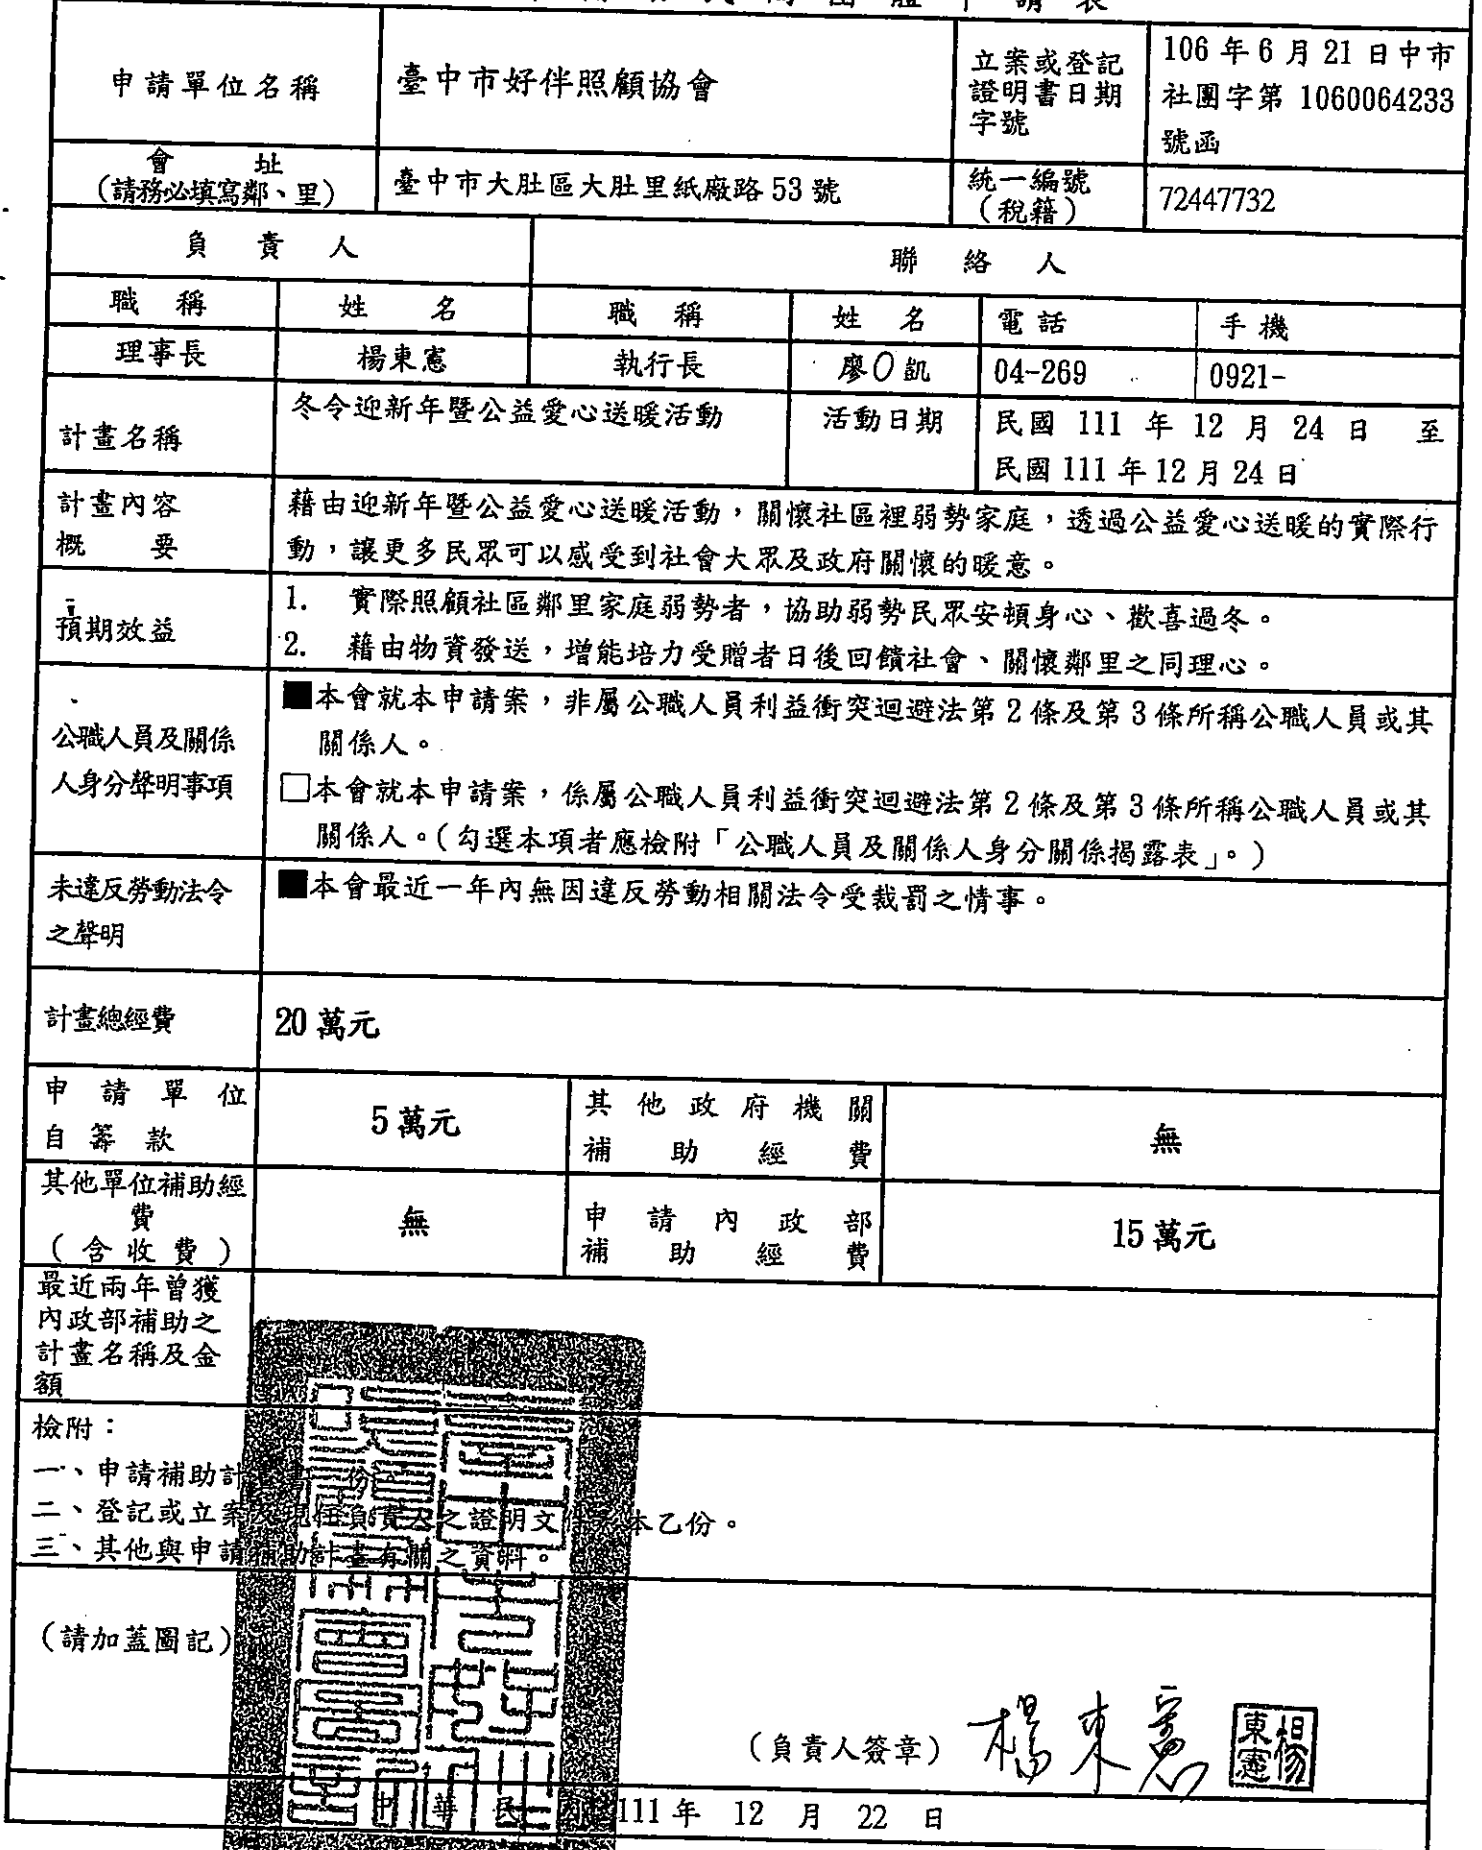 申請單位名稱
臺中市好伴照顧協會
立案或登記
證明書日期
字號
106 年 6 月 21 日中市
社團字第 1060064233
號函
會 址
(請務必填寫鄰、里)
臺中市大肚區大肚里紙廠路 53 號
統一編號
(稅籍)
72447732
負 責 人
聯 絡 人
職 稱
姓 名
職 稱
姓 名
電 話
手 機
理事長
楊東憲
執行長
廖O凱
04-269
0921-
計畫名稱
冬令迎新年暨公益愛心送暖活動
活動日期
民國 111 年 12 月 24 日 至
民國 111 年 12 月 24 日
計畫內容
概 要
藉由迎新年暨公益愛心送暖活動，關懷社區裡弱勢家庭，透過公益愛心送暖的實際行
動，讓更多民眾可以感受到社會大眾及政府關懷的暖意。
預期效益
1. 實際照顧社區鄰里家庭弱勢者，協助弱勢民眾安頓身心、歡喜過冬。
2. 藉由物資發送，增能培力受贈者日後回饋社會、關懷鄰里之同理心。
公職人員及關係
人身分聲明事項
■本會就本申請案，非屬公職人員利益衝突迴避法第 2 條及第 3 條所稱公職人員或其
關係人。
□本會就本申請案，係屬公職人員利益衝突迴避法第 2 條及第 3 條所稱公職人員或其
關係人。(勾選本項者應檢附「公職人員及關係人身分關係揭露表」。)
未違反勞動法令
之聲明
■本會最近一年內無因違反勞動相關法令受裁罰之情事。
計畫總經費
20 萬元
申 請 單 位
自 籌 款
5 萬元
其 他 政 府 機 關
補 助 經 費
無
其他單位補助經
費
(含收費)
無
申 請 內 政 部
補 助 經 費
15 萬元
最近兩年曾獲
內政部補助之
計畫名稱及金
額
檢附：
一、申請補助計畫書 份
二、登記或立案 現任負責人之證明文 本乙份。
三、其他與申請補助計畫有關之資料。
(請加蓋圖記)
(負責人簽章)
楊東憲
楊東憲
中 華 民 111 年 12 月 22 日